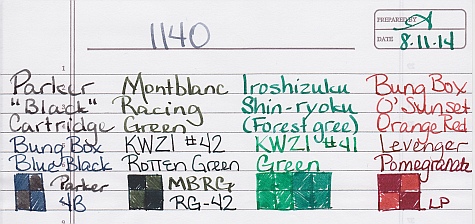 1140
PREPARED BY
DATE 8-11-14
1
Parker Montblanc Iroshizuku Bung Box
"Black" Racing Shin-ryoku O'Sunset
Cartridge Green (Forest gree) Orange Red
Bung Box KWZI #42 KWZI #41 Levenger
Blue Black Rotten Green Green Pomegranate
Parker MBRG
4B RG-42 LP